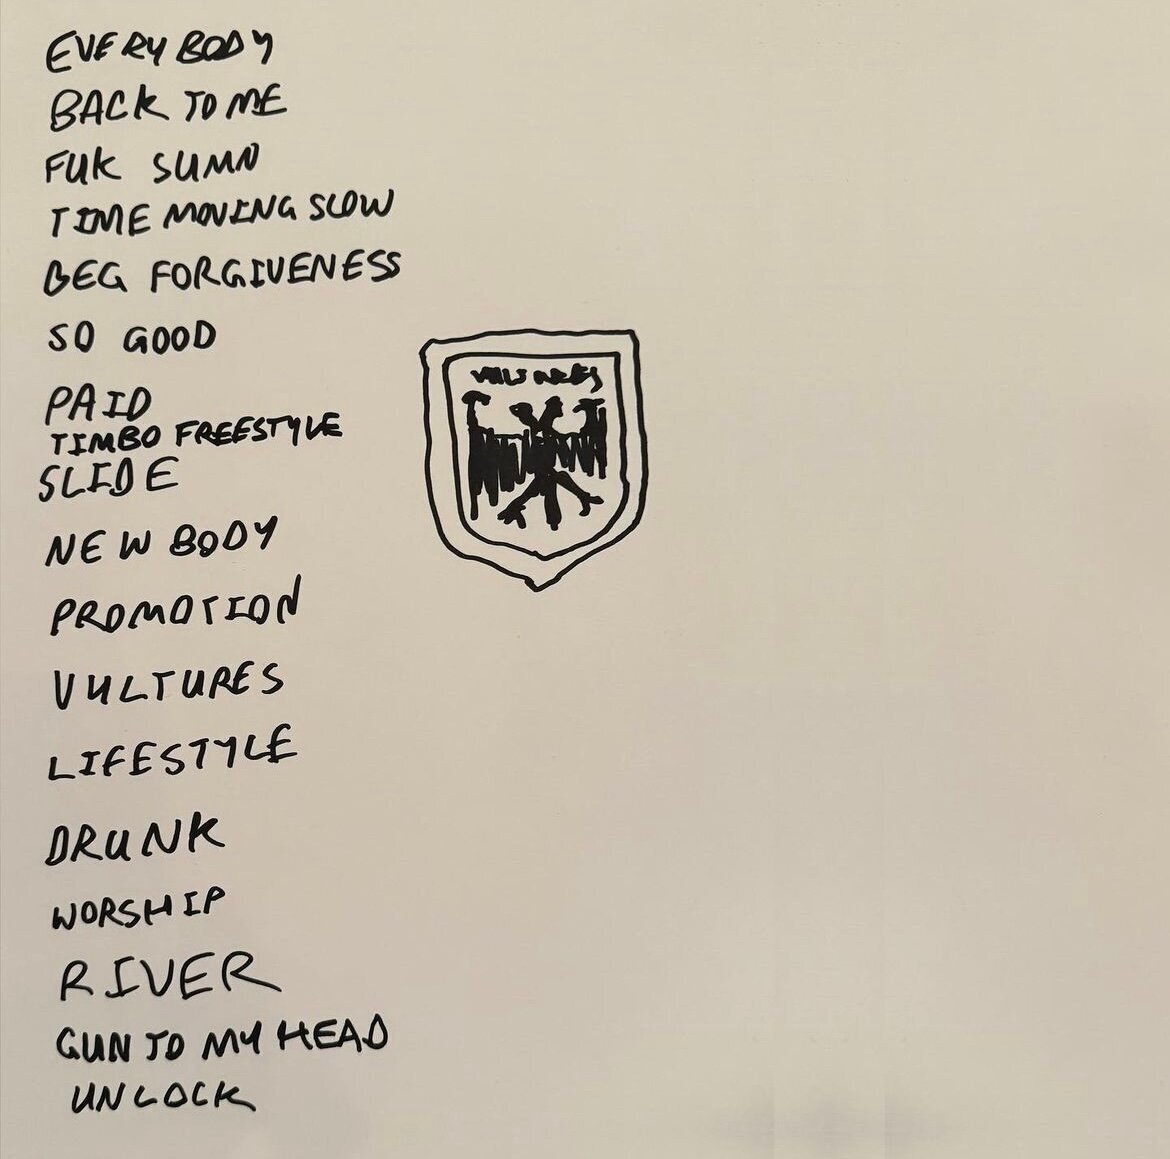 EVERYBODY
BACK TO ME
FUK SUMN
TIME MOVING SLOW
BEG FORGIVENESS
SO GOOD
PAID
TIMBO FREESTYLE
SLIDE
NEW BODY
PROMOTION
VULTURES
LIFESTYLE
DRUNK
WORSHIP
RIVER
GUN TO MY HEAD
UNLOCK
VULTURES